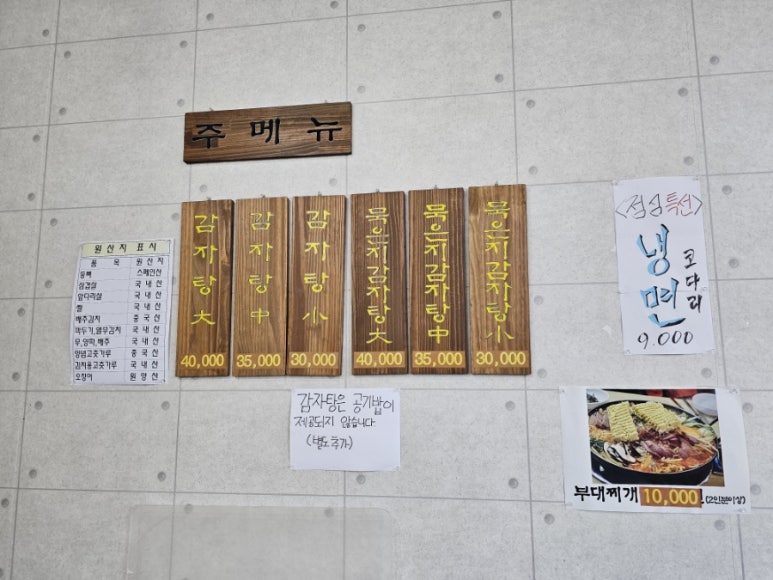 주메뉴
감자탕 大
40,000
감자탕 中
35,000
감자탕 小
30,000
묵은지감자탕 大
40,000
묵은지감자탕 中
35,000
묵은지감자탕 小
30,000
원산지 표시
품목 원산지
등뼈 스페인산
삼겹살 국내산
앞다리살 국내산
쌀 국내산
배추김치 중국산
깍두기,열무김치 국내산
무,양파,배추 국내산
양념고춧가루 중국산
김치용고춧가루 국내산
오징어 원양산
감자탕은 공기밥이
제공되지 않습니다
(별도추가)
<점심특선>
코다리
냉면
9.000
부대찌개 10,000원 (2인분이상)